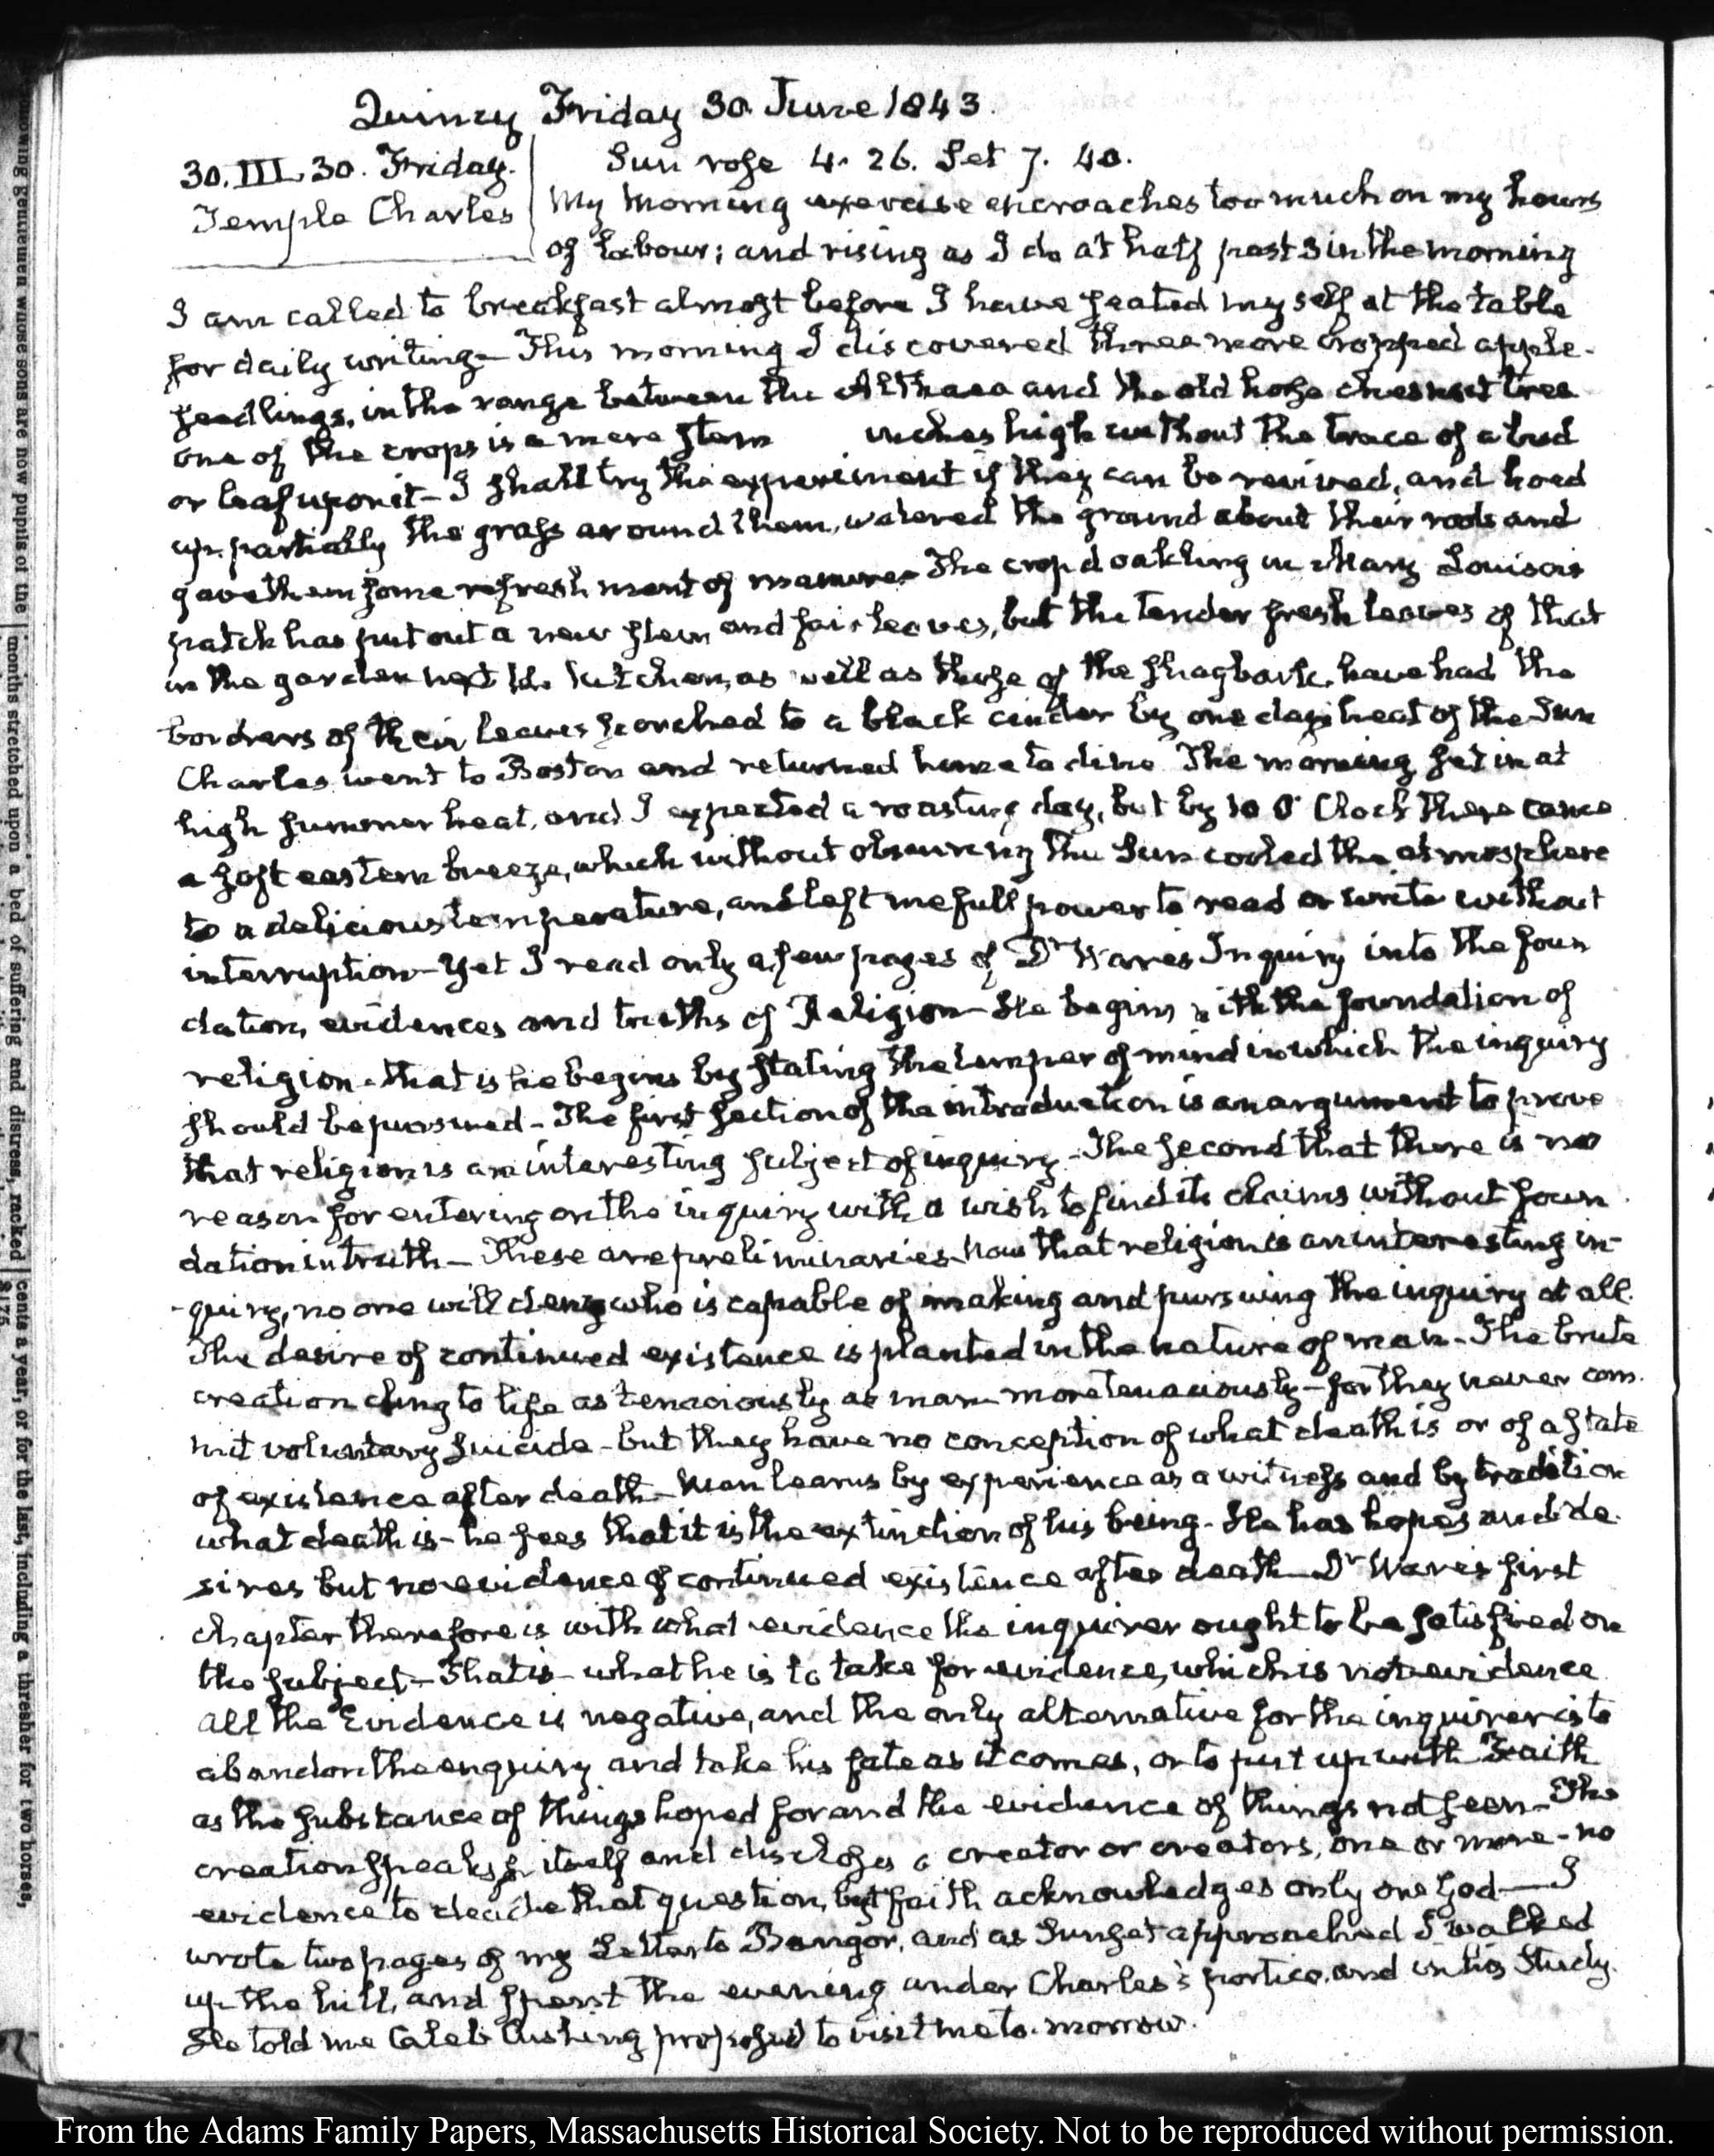 Quincy Friday 30 June 1843.
30. III. 30. Friday.
Temple Charles
Sun rose 4. 26. Set 7. 40.
My Morning exercise encroaches too much on my hours
of labour; and rising as I do at half past 3 in the morning
I am called to breakfast almost before I have seated myself at the table
for daily writing— This morning I discovered three more cropped apple-
seedlings, in the range between the Althaea and the old horse chesnut tree
one of the crops is a mere stem inches high without the trace of a bud
or leaf upon it— I shall try the experiment if they can be revived, and hoed
up partially the grass around them, watered the ground about their roots and
gave them some refreshment of manure— The crop'd oakling in Mary Louisa's
patch has put out a new stem and fair leaves, but the tender fresh leaves of that
in the garden next the kitchen, as well as those of the shagbark have had the
borders of their leaves scorched to a black cinder by one day's heat of the Sun
Charles went to Boston and returned home to dine The morning set in at
high summer heat, and I expected a roasting day, but by 10 O'Clock there came
a soft eastern breeze, which without obscuring the Sun cooled the atmosphere
to a delicious temperature, and left me full power to read or write without
interruption— Yet I read only a few pages of Dr Ware's Inquiry into the foun
dation, evidences and truths of Religion— He begins with the foundation of
religion— that is he begins by stating the temper of mind in which the inquiry
should be pursued— The first section of the introduction is an argument to prove
that religion is an interesting subject of inquiry— The second that there is no
reason for entering on the inquiry with a wish to find its claims without foun
dation in truth— These are preliminaries— Now that religion is an interesting in-
-quiry, no one will deny who is capable of making and pursuing the inquiry at all.
The desire of continued existence is planted in the nature of man— The brute
creation cling to life as tenaciously as man— more tenaciously— for they never com.
mit voluntary suicide— but they have no conception of what death is or of a state
of existence after death— Man learns by experience as a witness and by tradition
what death is— he sees that it is the extinction of his being— He has hopes and de
sires but no evidence of continued existence after death— Dr Ware's first
chapter therefore is with what evidence the inquirer ought to be satisfied on
the subject— That is— what he is to take for evidence, which is not evidence
All the Evidence is negative, and the only alternative for the inquirer is to
abandon the enquiry and take his fate as it comes, or to put up with Faith
as the substance of things hoped for and the evidence of things not seen— The
creation speaks for itself and discloses a creator or creators, one or more— no
evidence to decide that question, but faith acknowledges only one God— I
wrote two pages of my Letter to Bangor, and as Sunset approached I walked
up the hill, and spent the evening under Charles's portico, and in his Study.
He told me Caleb Cushing proposed to visit me to-morrow.
months stretched upon a bed of suffering and distress, racked
cents a year, or for the last, including a thresher for two horses,
gentlemen whose sons are now pupils of the
$175
From the Adams Family Papers, Massachusetts Historical Society. Not to be reproduced without permission.